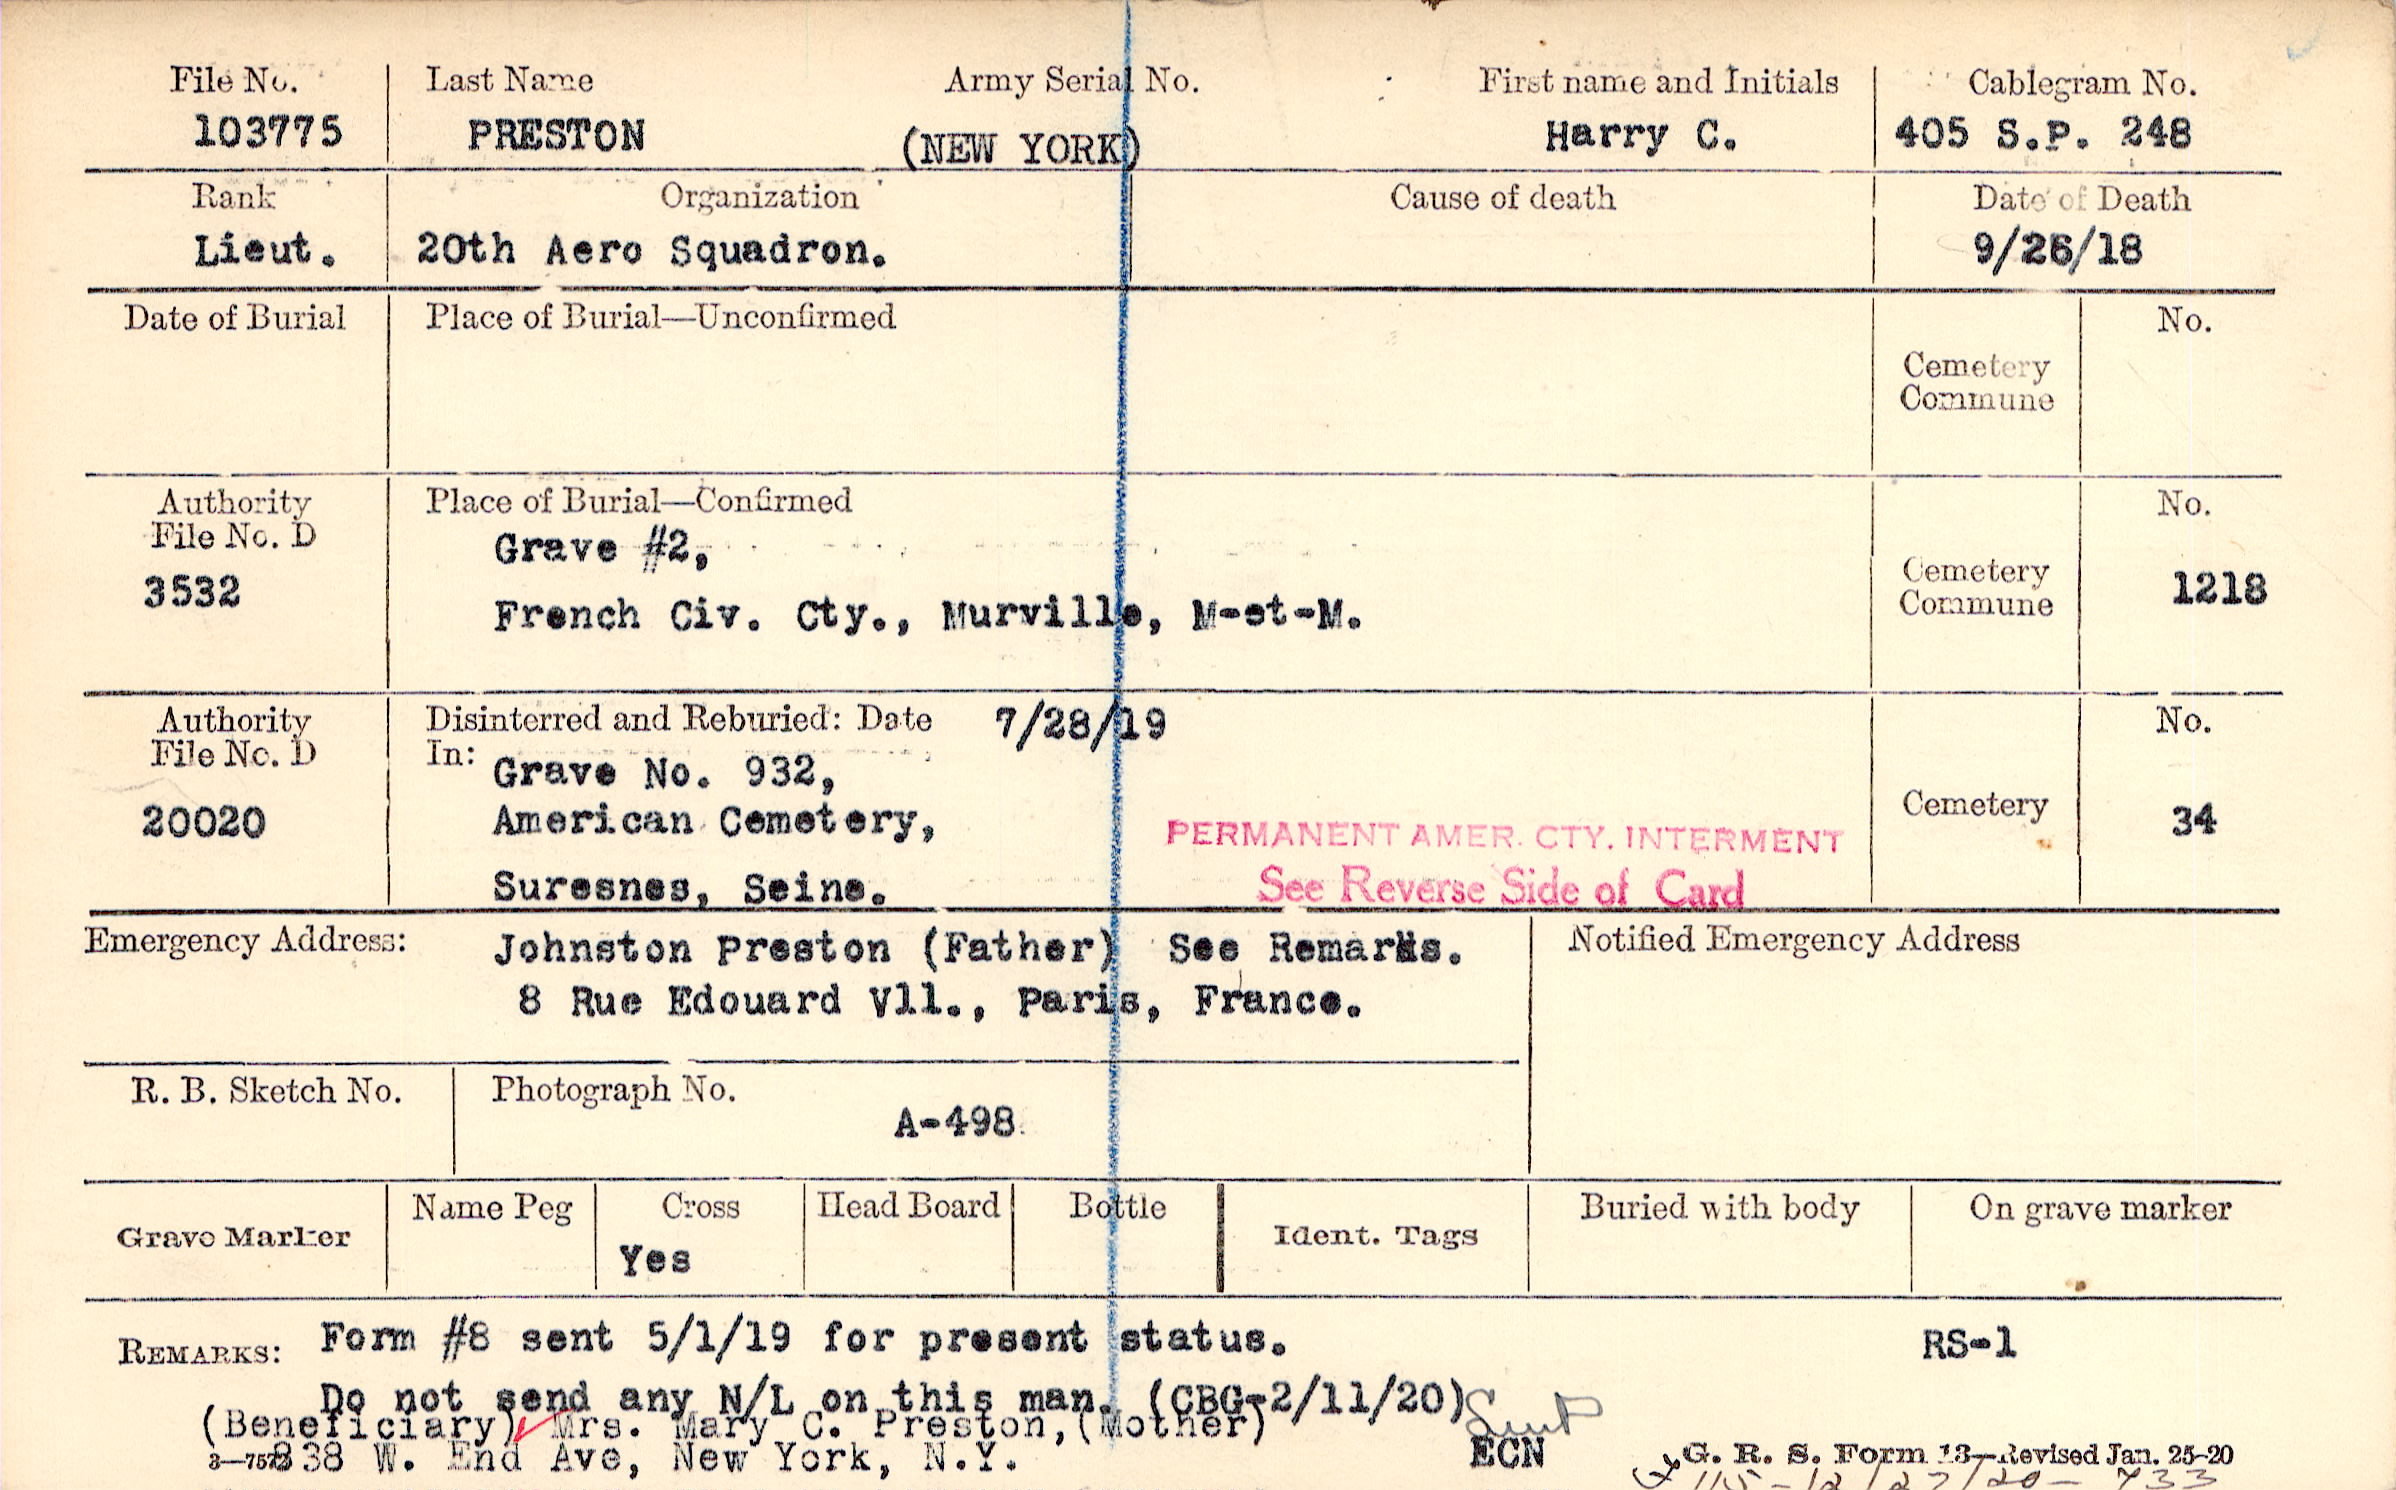 File No. Last Name Army Serial No. First name and Initials Cablegram No.
103775 PRESTON (NEW YORK) Harry C. 405 S.P. 248
Rank Organization Cause of death Date of Death
Lieut. 20th Aero Squadron. 9/26/18
Date of Burial Place of Burial—Unconfirmed No.
Cemetery
Commune
Authority Place of Burial—Confirmed No.
File No. D Grave #2,
3532 Cemetery
Commune 1218
French Civ. Cty., Murville, M-et-M.
Authority Disinterred and Reburied: Date 7/28/19 No.
File No. D In: Grave No. 932,
20020 American Cemetery, Cemetery 34
PERMANENT AMER. CTY. INTERMENT
Suresnes, Seine. See Reverse Side of Card
Emergency Address: Johnston Preston (Father) See Remarks. Notified Emergency Address
8 Rue Edouard Vll., Paris, France.
R. B. Sketch No. Photograph No.
A-498
Grave Marker Name Peg Cross Head Board Bottle Ident. Tags Buried with body On grave marker
Yes
REMARKS: Form #8 sent 5/1/19 for present status. RS-1
Do not send any N/L on this man. (CBG-2/11/20)
(Beneficiary) Mrs. Mary C. Preston,(Mother)
838 W. End Ave, New York, N.Y. ECN
G. R. S. Form 13—Revised Jan. 25-20